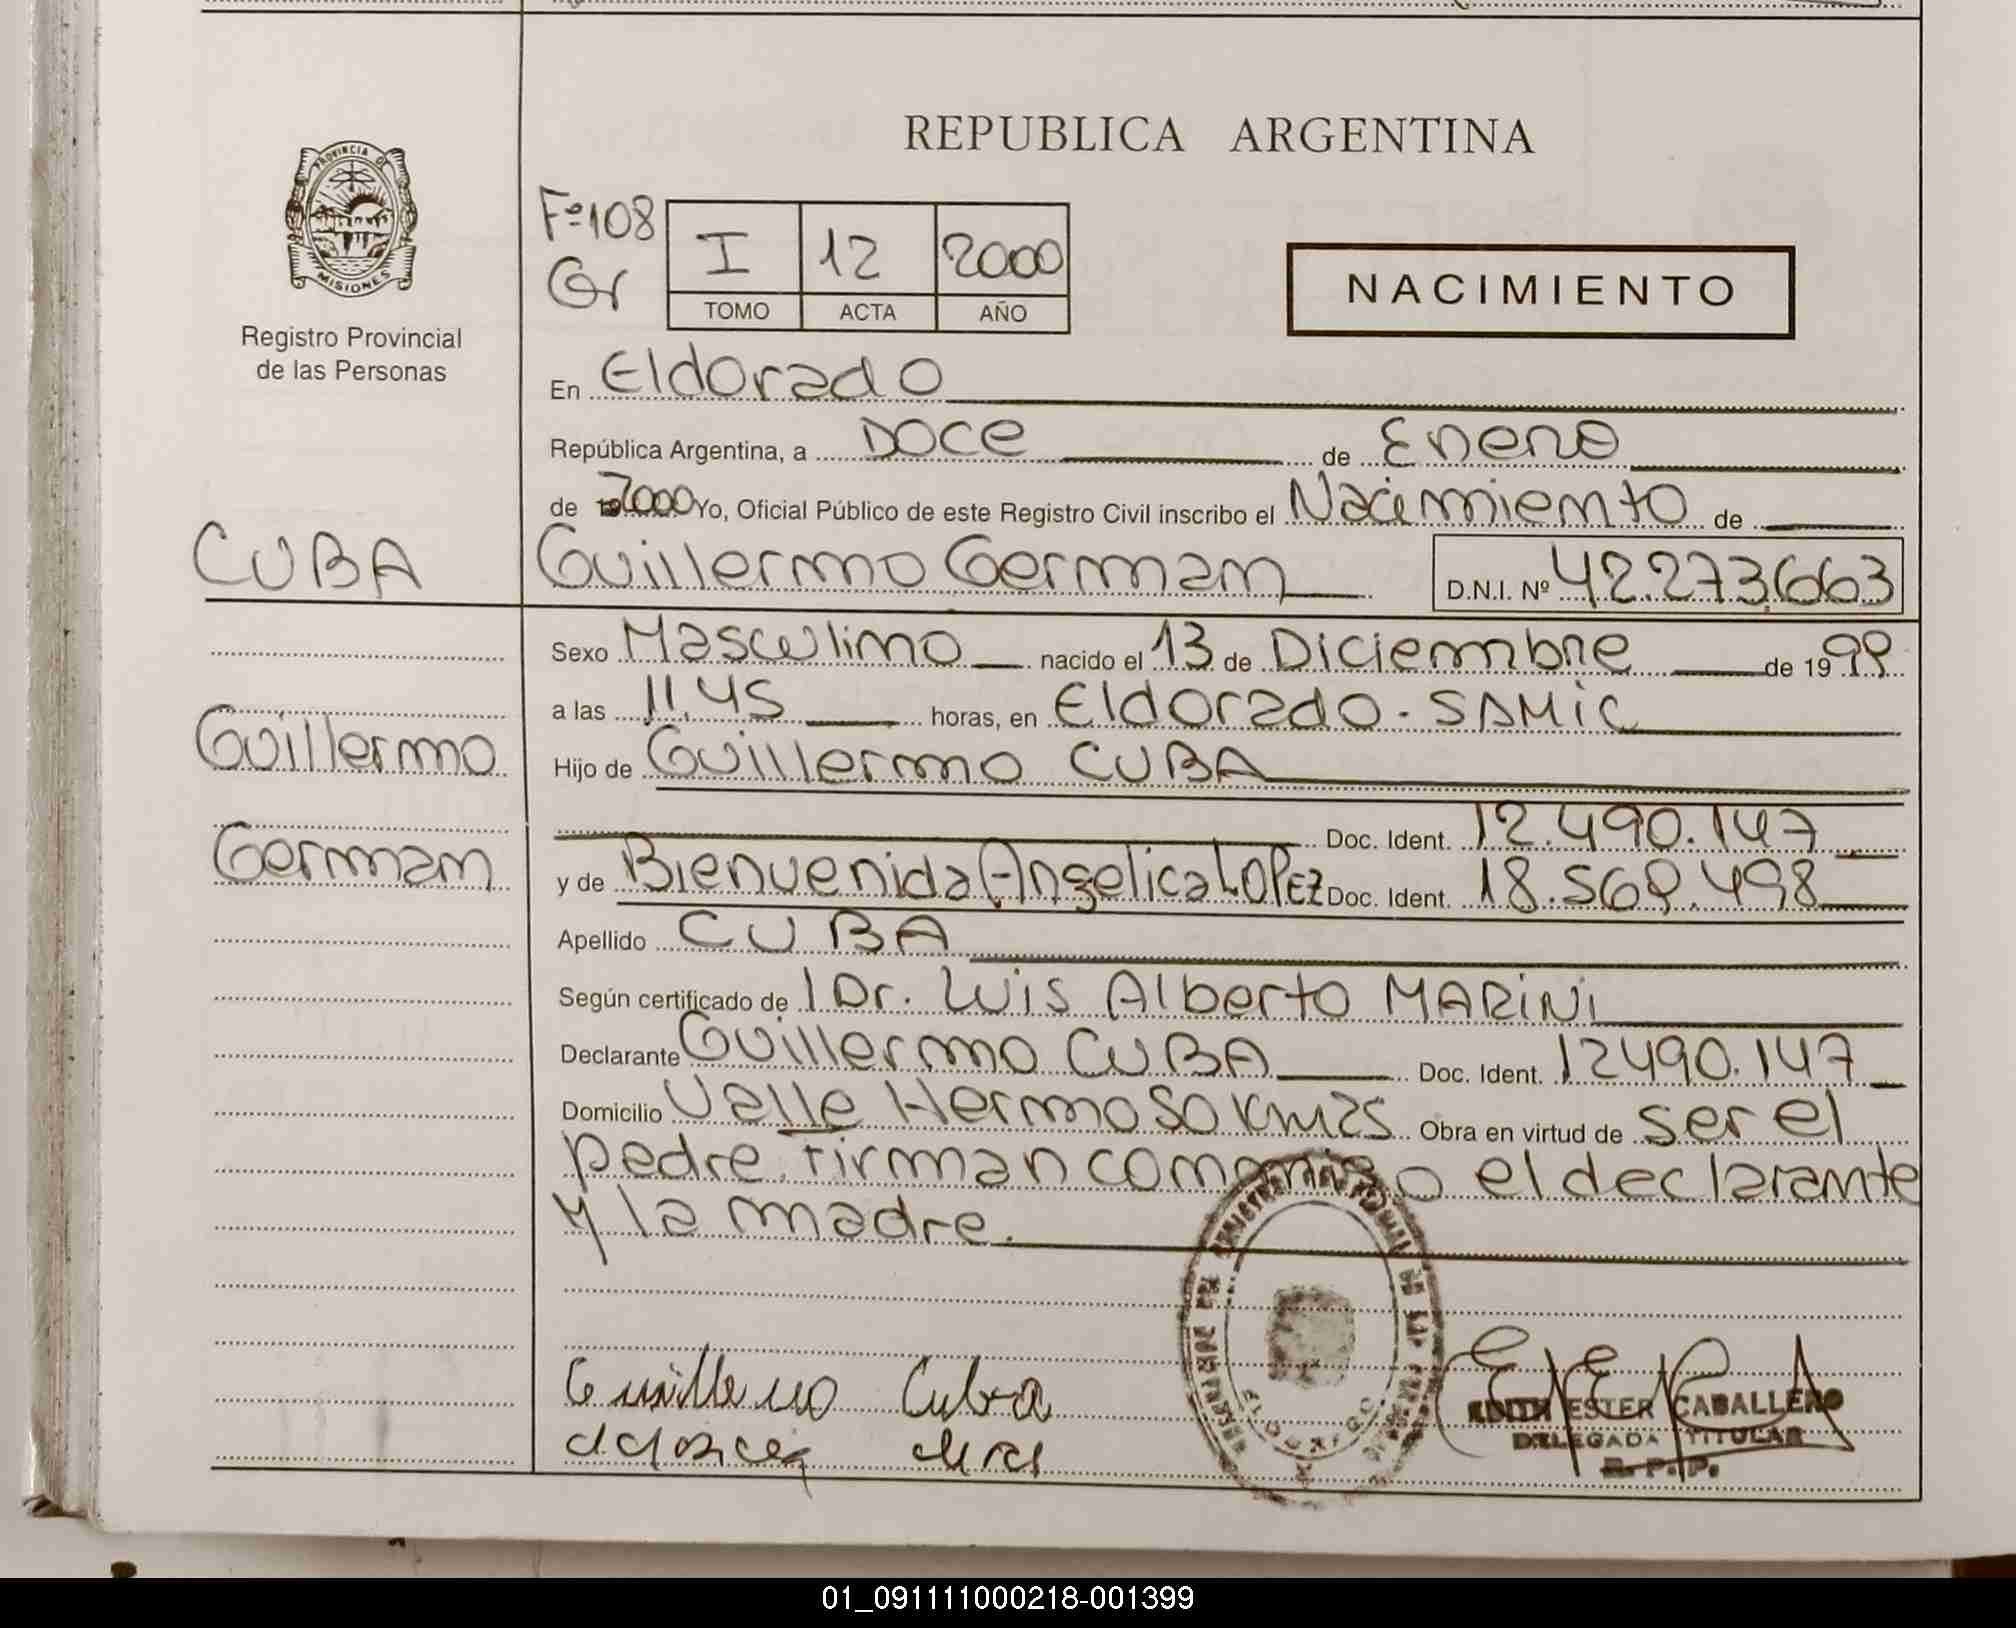 REPUBLICA ARGENTINA
PROVINCIA DE
MISIONES
Registro Provincial
de las Personas
Fº 108
Gr
I 12 2000
TOMO ACTA AÑO
NACIMIENTO
En Eldorado
República Argentina, a Doce de Enero
de 2000 Yo, Oficial Público de este Registro Civil inscribo el Nacimiento de
CUBA Guillermo German D.N.I. Nº 42.273.663
Sexo Masculino nacido el 13 de Diciembre de 1999
a las 11.45 horas, en Eldorado - SAMiC
Guillermo Hijo de Guillermo CUBA
Doc. Ident. 12.490.147
German y de Bienvenida Angelica LOPEZ Doc. Ident. 18.569.498
Apellido CUBA
Según certificado de l Dr. Luis Alberto MARINI
Declarante Guillermo CUBA Doc. Ident. 12490.147
Domicilio Valle Hermoso Km25 Obra en virtud de ser el
padre. Firman conmigo el declarante
y la madre.
Guillermo Cuba
EDITH ESTER CABALLERO
DELEGADA TITULAR
R. P. P.
01_091111000218-001399